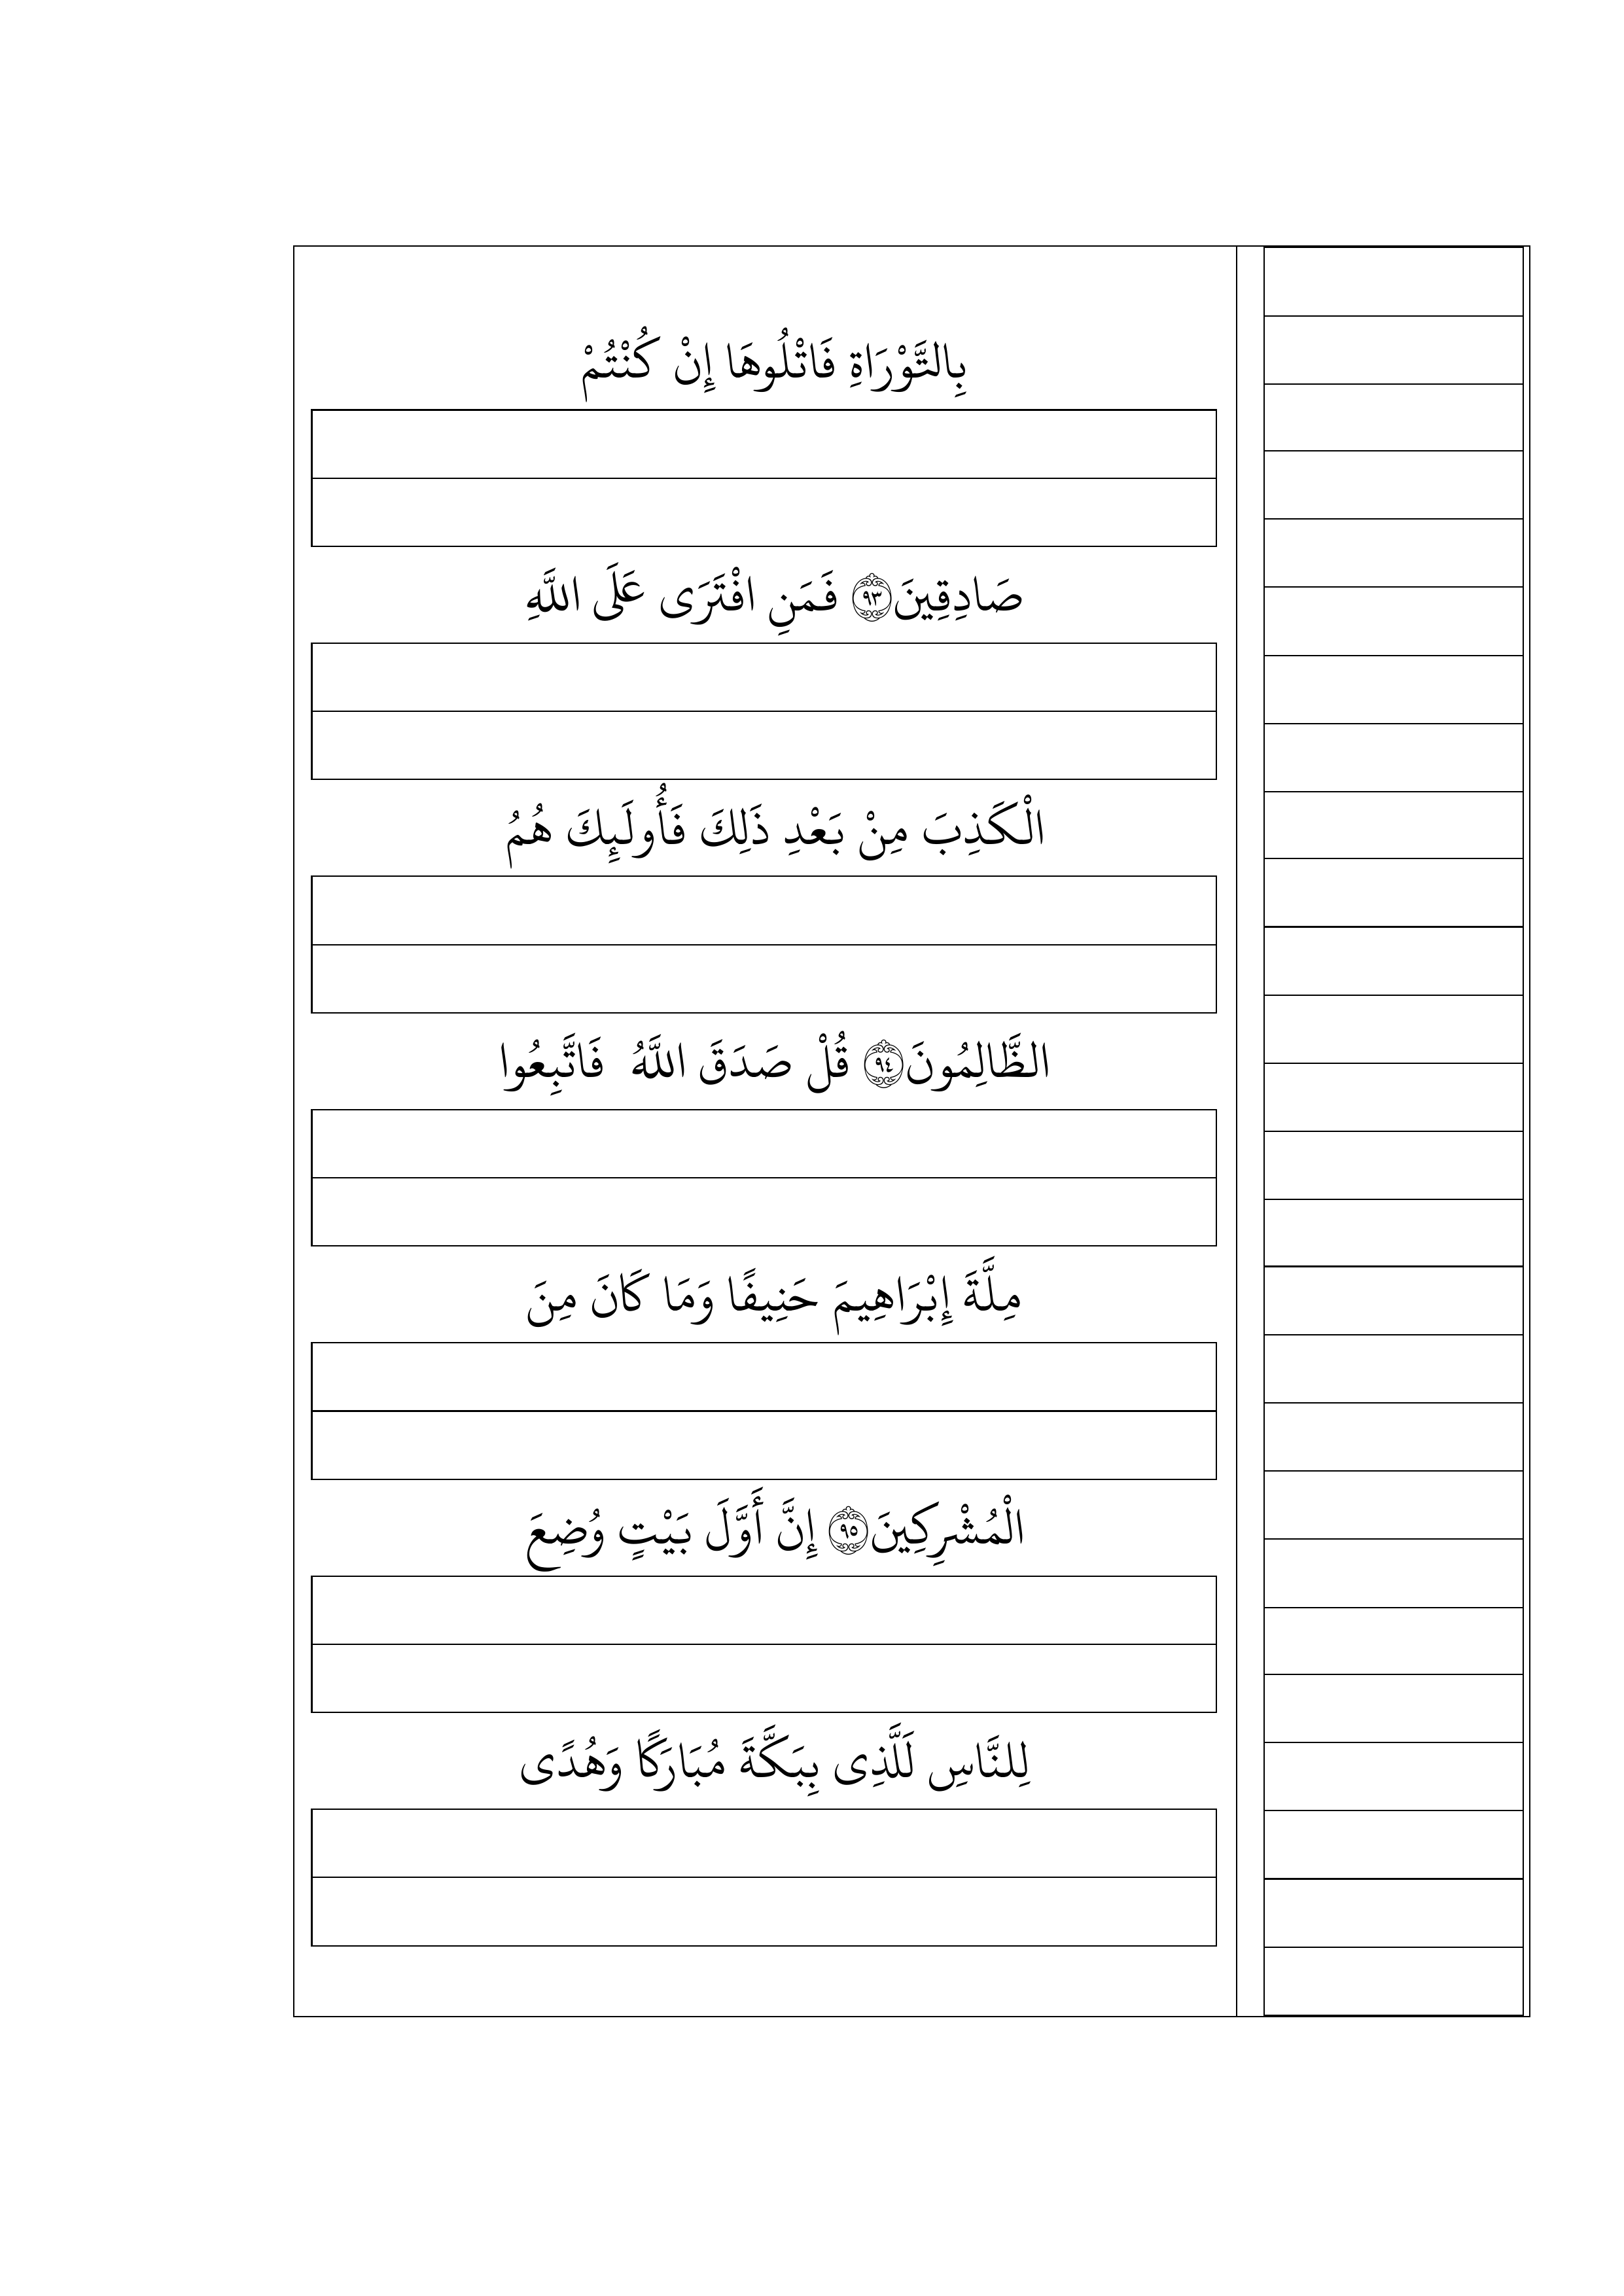 بِالتَّوْرَاةِ فَاتْلُوهَا إِنْ كُنْتُمْ
صَادِقِينَ ۝٩٣ فَمَنِ افْتَرَى عَلَى اللَّهِ
الْكَذِبَ مِنْ بَعْدِ ذَلِكَ فَأُولَئِكَ هُمُ
الظَّالِمُونَ ۝٩٤ قُلْ صَدَقَ اللَّهُ فَاتَّبِعُوا
مِلَّةَ إِبْرَاهِيمَ حَنِيفًا وَمَا كَانَ مِنَ
الْمُشْرِكِينَ ۝٩٥ إِنَّ أَوَّلَ بَيْتٍ وُضِعَ
لِلنَّاسِ لَلَّذِى بِبَكَّةَ مُبَارَكًا وَهُدًى